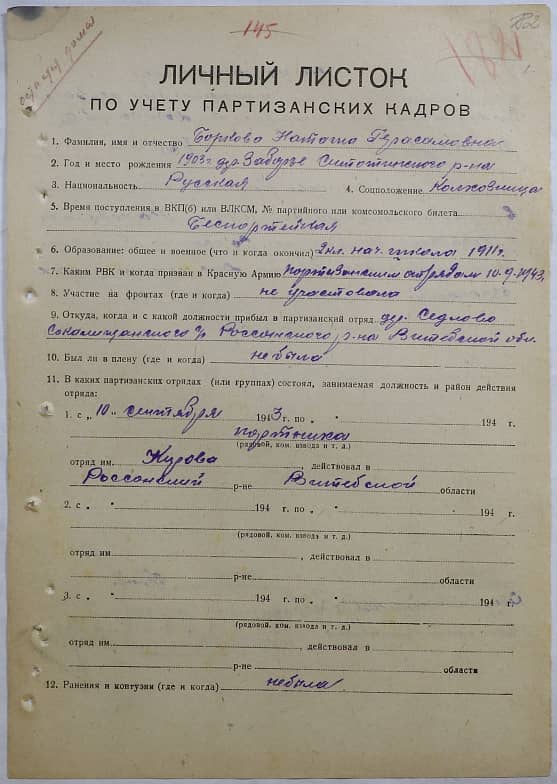 145
82
ЛИЧНЫЙ ЛИСТОК
ПО УЧЕТУ ПАРТИЗАНСКИХ КАДРОВ
1. Фамилия, имя и отчество Наталья Герасимовна
2. Год и место рождения 1903 г. дер. Заборье р-на
3. Национальность Русская 4. Соцположение Колхозница
5. Время поступления в ВКП(б) или ВЛКСМ, № партийного или комсомольского билета
Беспартейная
6. Образование: общее и военное (что и когда окончил) 2 кл. нач. школа 1911 г.
7. Каким РВК и когда призван в Красную Армию партизанским отрядом 10.9.1943.
8. Участие на фронтах (где и когда) не участвовала
9. Откуда, когда и с какой должности прибыл в партизанский отряд дер. Седлово
с/с Россонского р-на Витебской обл.
10. Был ли в плену (где и когда) небыла
11. В каких партизанских отрядах (или группах) состоял, занимаемая должность и район действия
отряда:
1. с „10" сентября 1943 г. по „ " 194 г.
портниха
(рядовой, ком. взвода и т. д.)
отряд им. , действовал в
Россонский р-не Витебской области
2. с „ " 194 г. по „ " 194 г.
(рядовой, ком. взвода и т. д.)
отряд им. , действовал в
р-не области
3. с „ " 194 г. по „ " 194 г.
(рядовой, ком. взвода и т. д.)
отряд им. , действовал в
р-не области
12. Ранения и контузии (где и когда) небыла